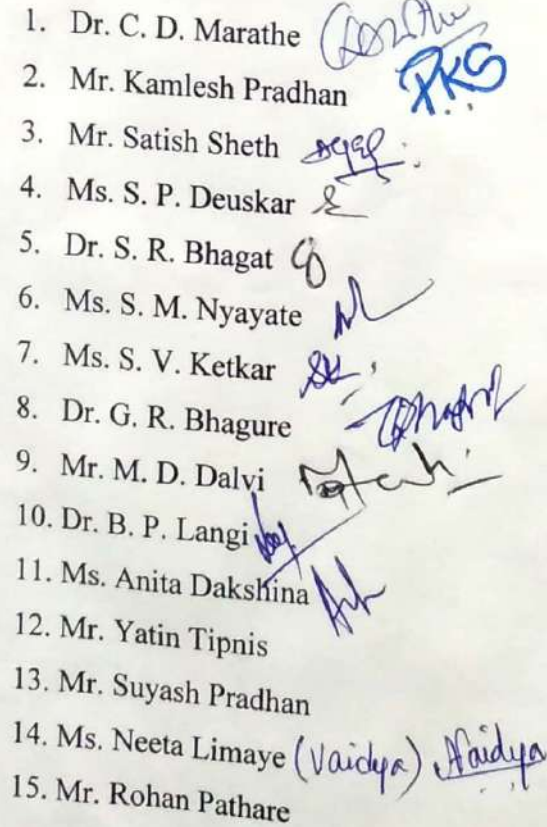 1. Dr. C. D. Marathe
2. Mr. Kamlesh Pradhan PKS
3. Mr. Satish Sheth
4. Ms. S. P. Deuskar
5. Dr. S. R. Bhagat
6. Ms. S. M. Nyayate
7. Ms. S. V. Ketkar
8. Dr. G. R. Bhagure
9. Mr. M. D. Dalvi
10. Dr. B. P. Langi
11. Ms. Anita Dakshina
12. Mr. Yatin Tipnis
13. Mr. Suyash Pradhan
14. Ms. Neeta Limaye (Vaidya) Naidya
15. Mr. Rohan Pathare